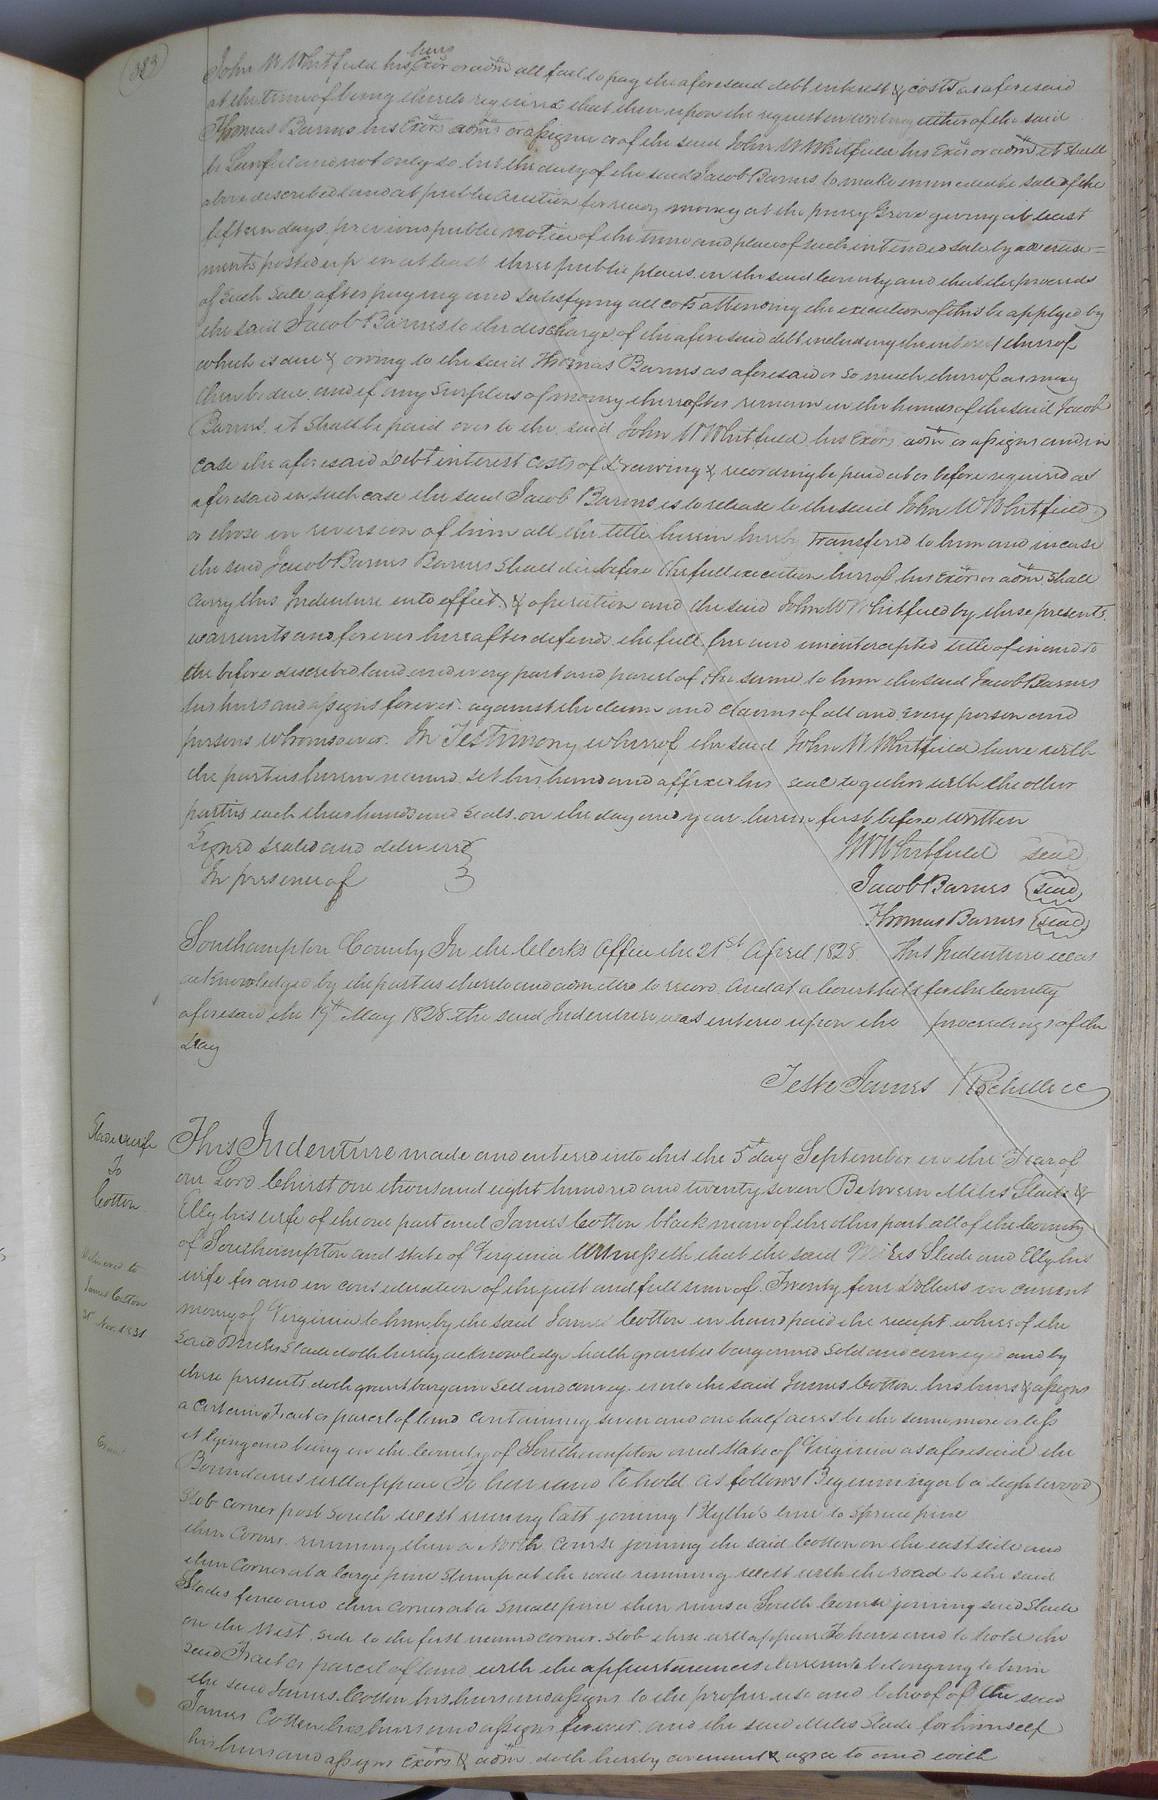 383
John W Whitfield his heirs Exōr or adm̄ all fail to pay the aforesaid debt interest & costs as aforesaid
at the time of being thereto required that then upon the request in writing either of the said
Thomas Barnes his Exōrs adm̄s or assigns or of the said John W Whitfield his Exōr or adm̄ it shall
be Lawful and not only so but the duty of the said Jacob Barnes to make immediate sale of the
above described land at public Auction for ready money at the piney Grove giving at least
fifteen days previous public notice of the time and place of such intended sale by advertise=
ments posted up in at least three public places in the said County and that the proceeds
of such sale after paying and satisfying all costs attending the execution of this be applyed by
the said Jacob Barnes to the discharge of the aforesaid debt including the interest thereof
which is due & owing to the said Thomas Barnes as aforesaid or so much thereof as may
then be due and if any surpless of money thereafter remain in the hands of the said Jacob
Barnes it shall be paid over to the said John W Whitfield his Exōrs adm̄ or assigns and in
case the aforesaid Debt interest costs of Drawing & recording be paid at or before required as
aforesaid in such case the said Jacob Barnes is to release to the said John W Whitfield
or those in reversion of him all the title herein Transferd to him and in case
the said Jacob Barnes Barnes shall die before the full execution hereof his Exōrs or adm̄ shall
carry this Indenture into effect & operation and the said John W Whitfield by these presents
warrents and forever hereafter defends the full free and unintercepted title of in and to
the before described land and every part and parcel of the same to him the said Jacob Barnes
his heirs and assigns forever against the claim and claims of all and every person and
persons whomsoever. In Testimony whereof the said John W Whitfield have with
the parties herein named set his hand and affixed his seal together with the other
parties each their hands and seals on the day and year herein first before written
Signed sealed and delivered
In presence of
JW Whitfield seal
Jacob Barnes seal
Thomas Barnes seal
Southampton County In the Clerks Office the 21st April 1828 This Indenture was
acknowledged by the parties thereto and admitted to record And at a Court held for the County
aforesaid the 19th May 1828 the said Indenture was entered upon the proceedings of the
Day
Teste James Rochelle cc
Slade & wife
To
Cotton
Delivered to
James Cotton
Nov. 1831
This Indenture made and entered into this the 5th day September in the Year of
our Lord Christ one thousand eight hundred and twenty seven Between Miles Slade &
Elly his wife of the one part and James Cotton black man of the other part all of the County
of Southampton and state of Virginia Witnesseth that the said Miles Slade and Elly his
wife for and in consideration of the just and full sum of Twenty four Dollars in current
money of Virginia to him by the said James Cotton in hand paid the receipt whereof the
said Miles Slade doth hereby acknowledge hath granted bargained sold and conveyed and by
these presents doth grant bargain sell and convey unto the said James Cotton his heirs & assigns
a certain Tract or parcel of land containing seven and one half acres be the same more or less
it lying and being in the County of Southampton and state of Virginia as aforesaid the
Boundaries will appear To have and to hold as follows Begenning at a lightwood
stob corner post South west running East joining Blythe's line to spruce pine
then corner running then a North course joining the said Cotton on the east side and
then corner at a large pine stump at the road running west with the road to the said
Slades fence and then corner at a small pine then runs a South Course joining said Slade
on the West side to the first named corner stob there will appear To have and to hold the
said Tract or parcel of land with the appurtenances thereunto belonging to him
the said James Cotton his heirs and assigns to the proper use and behoof of the said
James Cotton his heirs and assigns forever and the said Miles Slade for himself
his heirs and assigns Exōrs & adm̄ doth hereby covenant & agree to and with